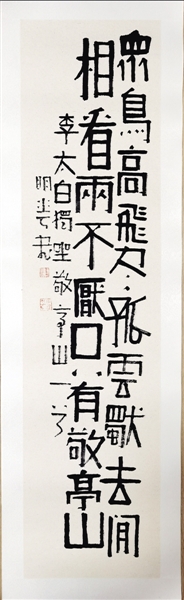 眾鳥高飛尽孤雲獸去閒
相看兩不厭只有敬亭山
李太白獨坐敬亭山一首